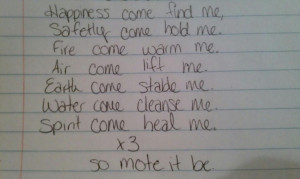 Happiness come find me,
Safetly come hold me.
Fire come warm me.
Air come lift me.
Earth come stable me.
Water come cleanse me.
Spirit come heal me.
x3
so mote it be